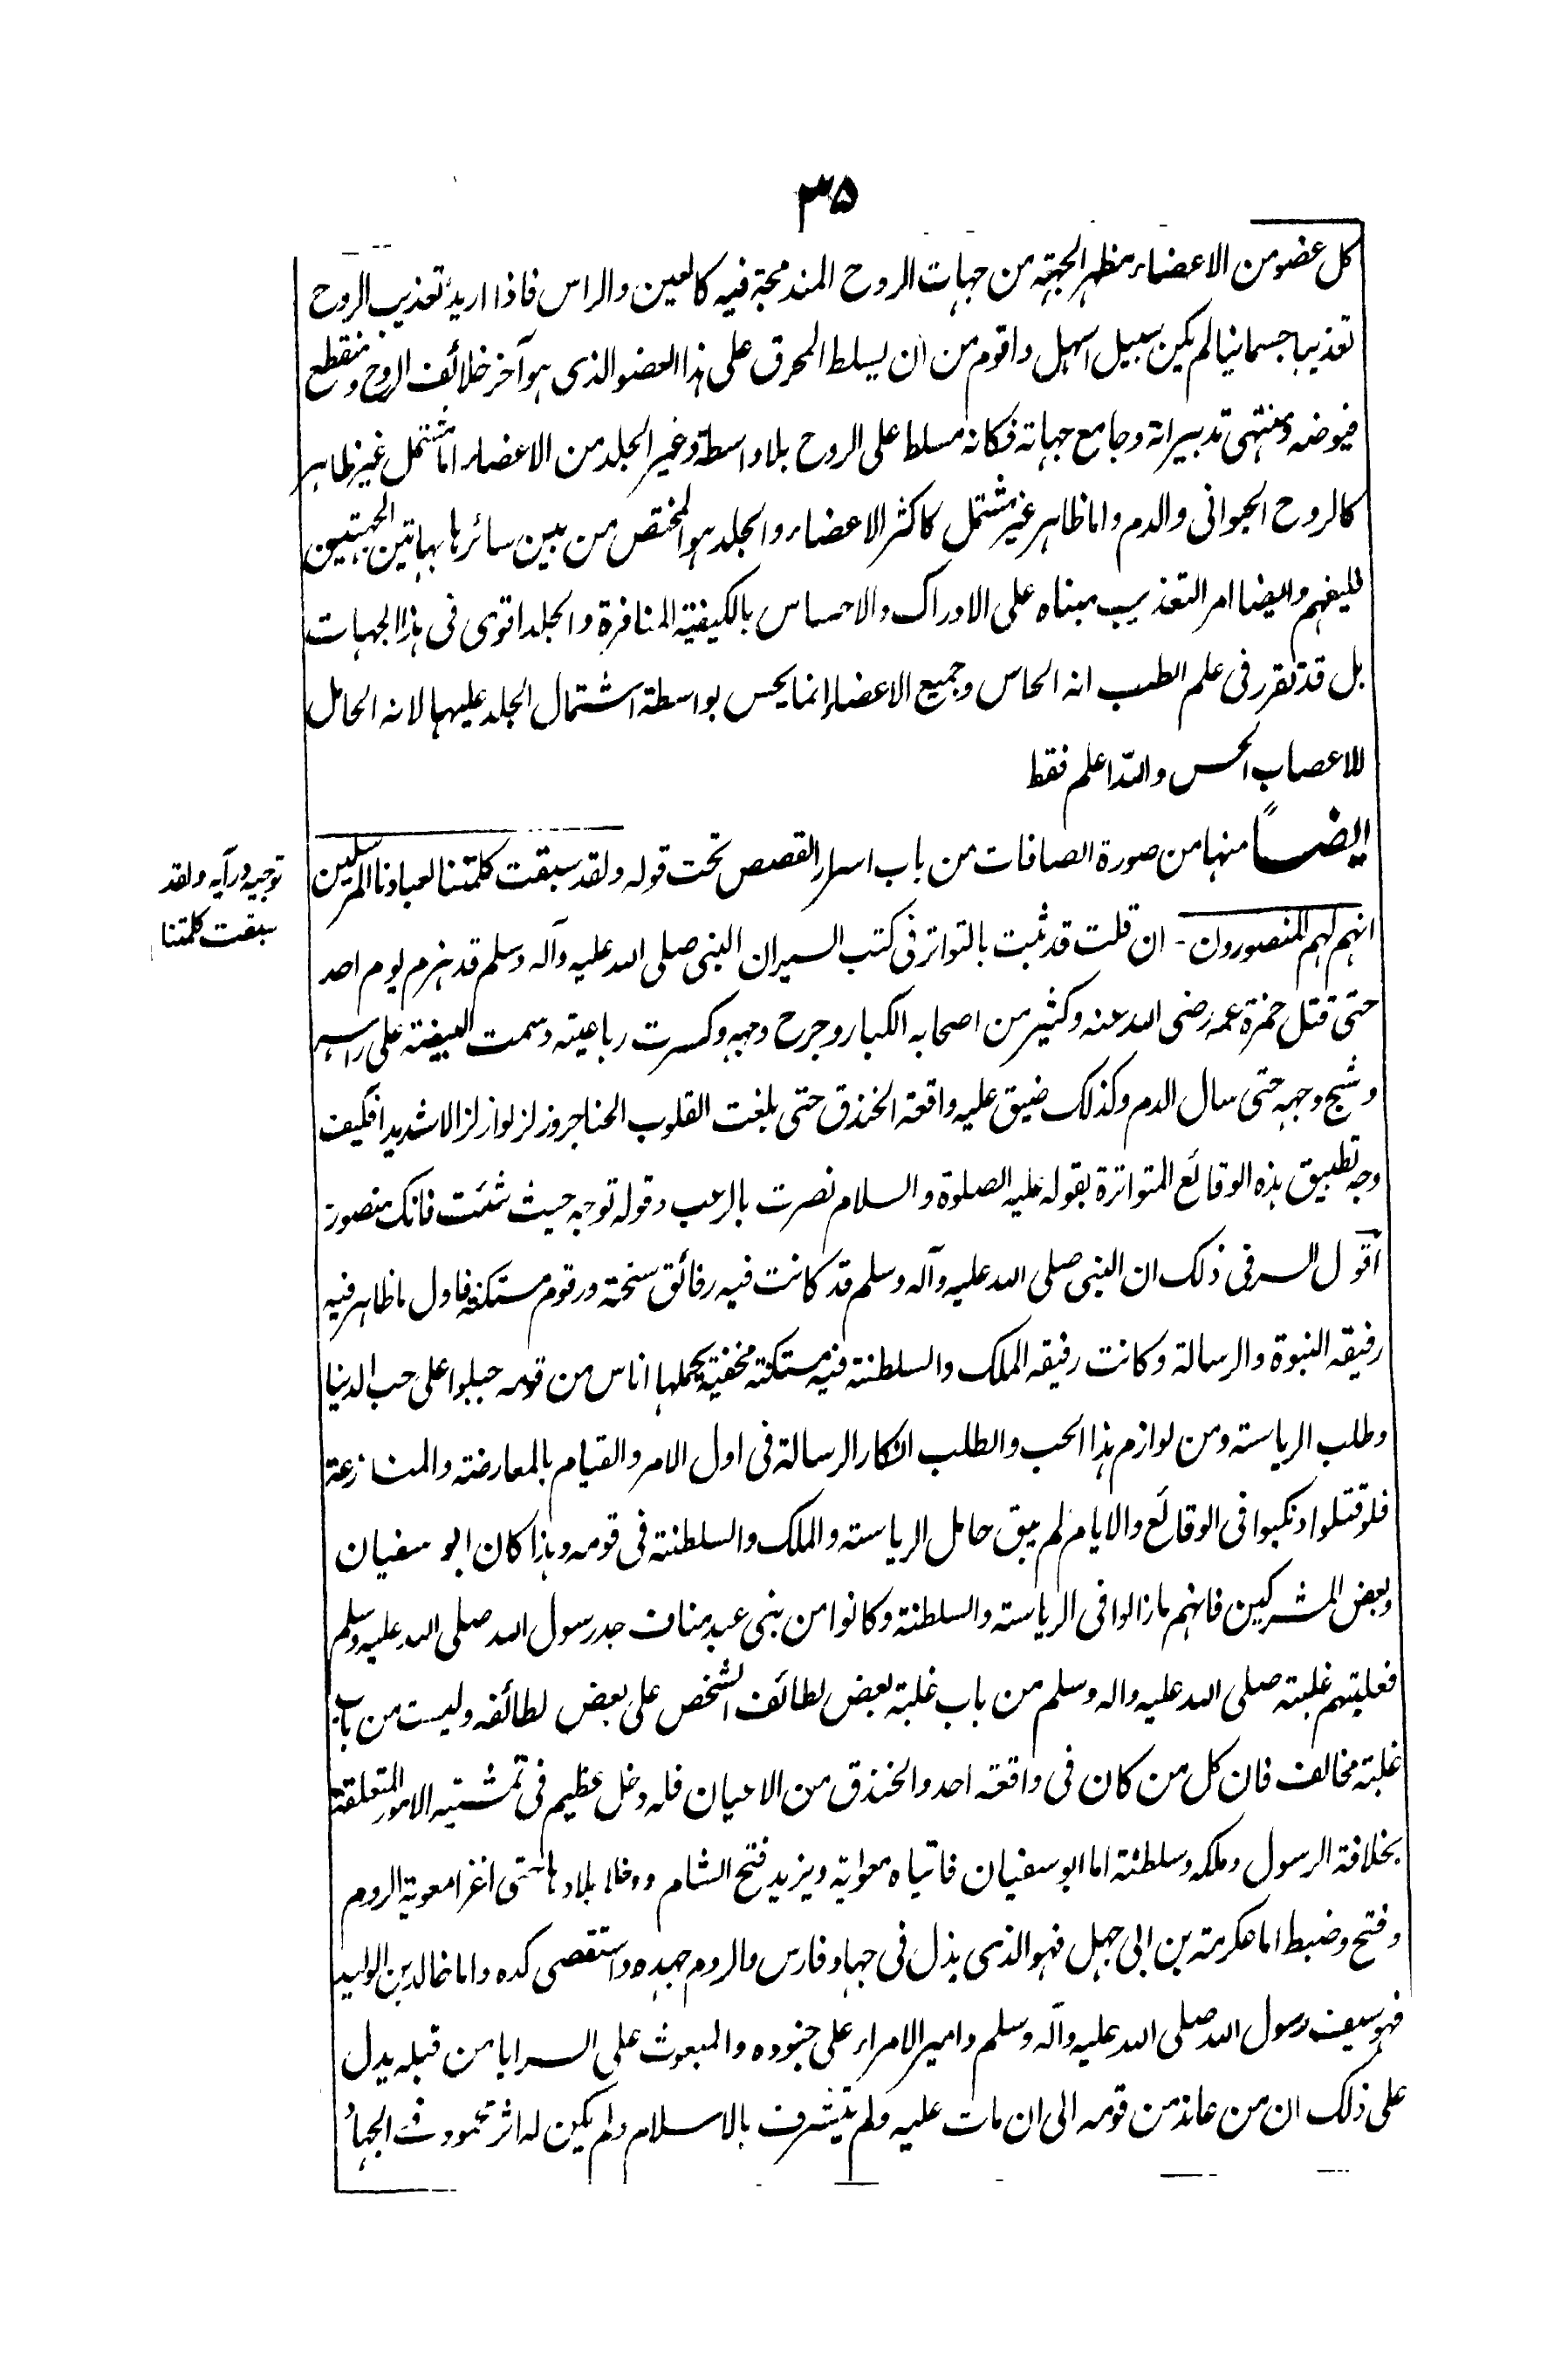 ۳۵
كل عضو من الاعضاء مظهر الجهته من جهات الروح المندمجة فيه كالعين والراس فاذا اريد تعذيب الروح
تعذيبا جسمانيا لم يكن سبيل اسهل واقوم من ان يسلط المحرق على هذا العضو الذى هو آخر خلائف الروح ومنقطع
فيوضه ومنتهى تدبيراته وجامع جهاته فكانه مسلط على الروح بلا واسطة وغير الجلد من الاعضاء اما مشتمل غير ظاهر
كالروح الحيوانى والدم واما ظاهر غير مشتمل كاكثر الاعضاء والجلد هو المختص من بين سائرها بهاتين الجهتين
فليفهم وايضا امر التعذيب مبناه على الادراك والاحساس بالكيفية المنافرة والجلد اقوى فى هذا الجهات
بل قد تقرر فى علم الطب انه الحاس وجميع الاعضاء إنما يحس بواسطة اشتمال الجلد عليها لانه الحامل
للاعصاب الحس والله اعلم فقط
ايضاً منها من صورة الصافات من باب اسرار القصص تحت قوله ولقد سبقت كلمتنا لعبادنا المرسلين
توجيه در آيه ولقد
سبقت كلمتنا
انهم لهم المنصورون - ان قلت قد ثبت بالتواتر فى كتب السير ان النبى صلى الله عليه وآله وسلم قد هزم يوم احد
حتى قتل حمزة عمه رضى الله عنه وكثير من اصحابه الكبار وجرح وجهه وكسرت رباعيته وسمت البيضة على راسه
وشج وجهه حتى سال الدم وكذلك ضيق عليه واقعة الخندق حتى بلغت القلوب الحناجر وزلزلوا زلزالا شديدا فكيف
وجه تطبيق هذه الوقائع المتواترة بقوله عليه الصلوة والسلام نصرت بالرعب وقوله توجه حيث شئت فانك منصور
اقول السر فى ذلك ان النبى صلى الله عليه وآله وسلم قد كانت فيه رقائق سنحة ورقوم مستكنة فاول ما ظاهر فيه
رقيقه النبوة والرسالة وكانت رقيقه الملك والسلطنة فيه مستكنة مخفية يحملها اناس من قومه جبلوا على حب الدنيا
وطلب الرياسته ومن لوازم هذا الحب والطلب انكار الرسالة فى اول الامر والقيام بالمعارضته والمنازعة
فلو قتلوا ونكبوا فى الوقائع والايام لم يبق حامل الرياسته والملك والسلطنة فى قومه وهذا كان ابو سفيان
وبعض المشركين فانهم مازالوا فى الرياسته والسلطنة وكانوا من بنى عبد مناف جد رسول الله صلى الله عليه وسلم
فعليتهم غلبته صلى الله عليه واله وسلم من باب غلبة بعض لطائف الشخص على بعض لطائفه وليست من باب
غلبته مخالف فان كل من كان فى واقعة احد والخندق من الاعيان فله دخل عظيم فى تمشيه الامور المتعلقة
بخلافة الرسول وملكه وسلطنة اما ابو سفيان فاتياه معوية ويزيد فتح الشام ودخلا بلادها حتى اغزا معوية الروم
وفتح وضبط اما عكرمة بن ابى جهل فهو الذى بذل فى جهاد فارس والروم جهده واستقصى كده واما خالد بن الوليد
فهو سيف رسول الله صلى الله عليه وآله وسلم وامير الامراء على جنوده والمبعوث على السرايا من قبله يدل
على ذلك ان من عاند من قومه الى ان مات عليه ولم يتشرف بالاسلام ولم يكن له اثر محمود فى الجهاد